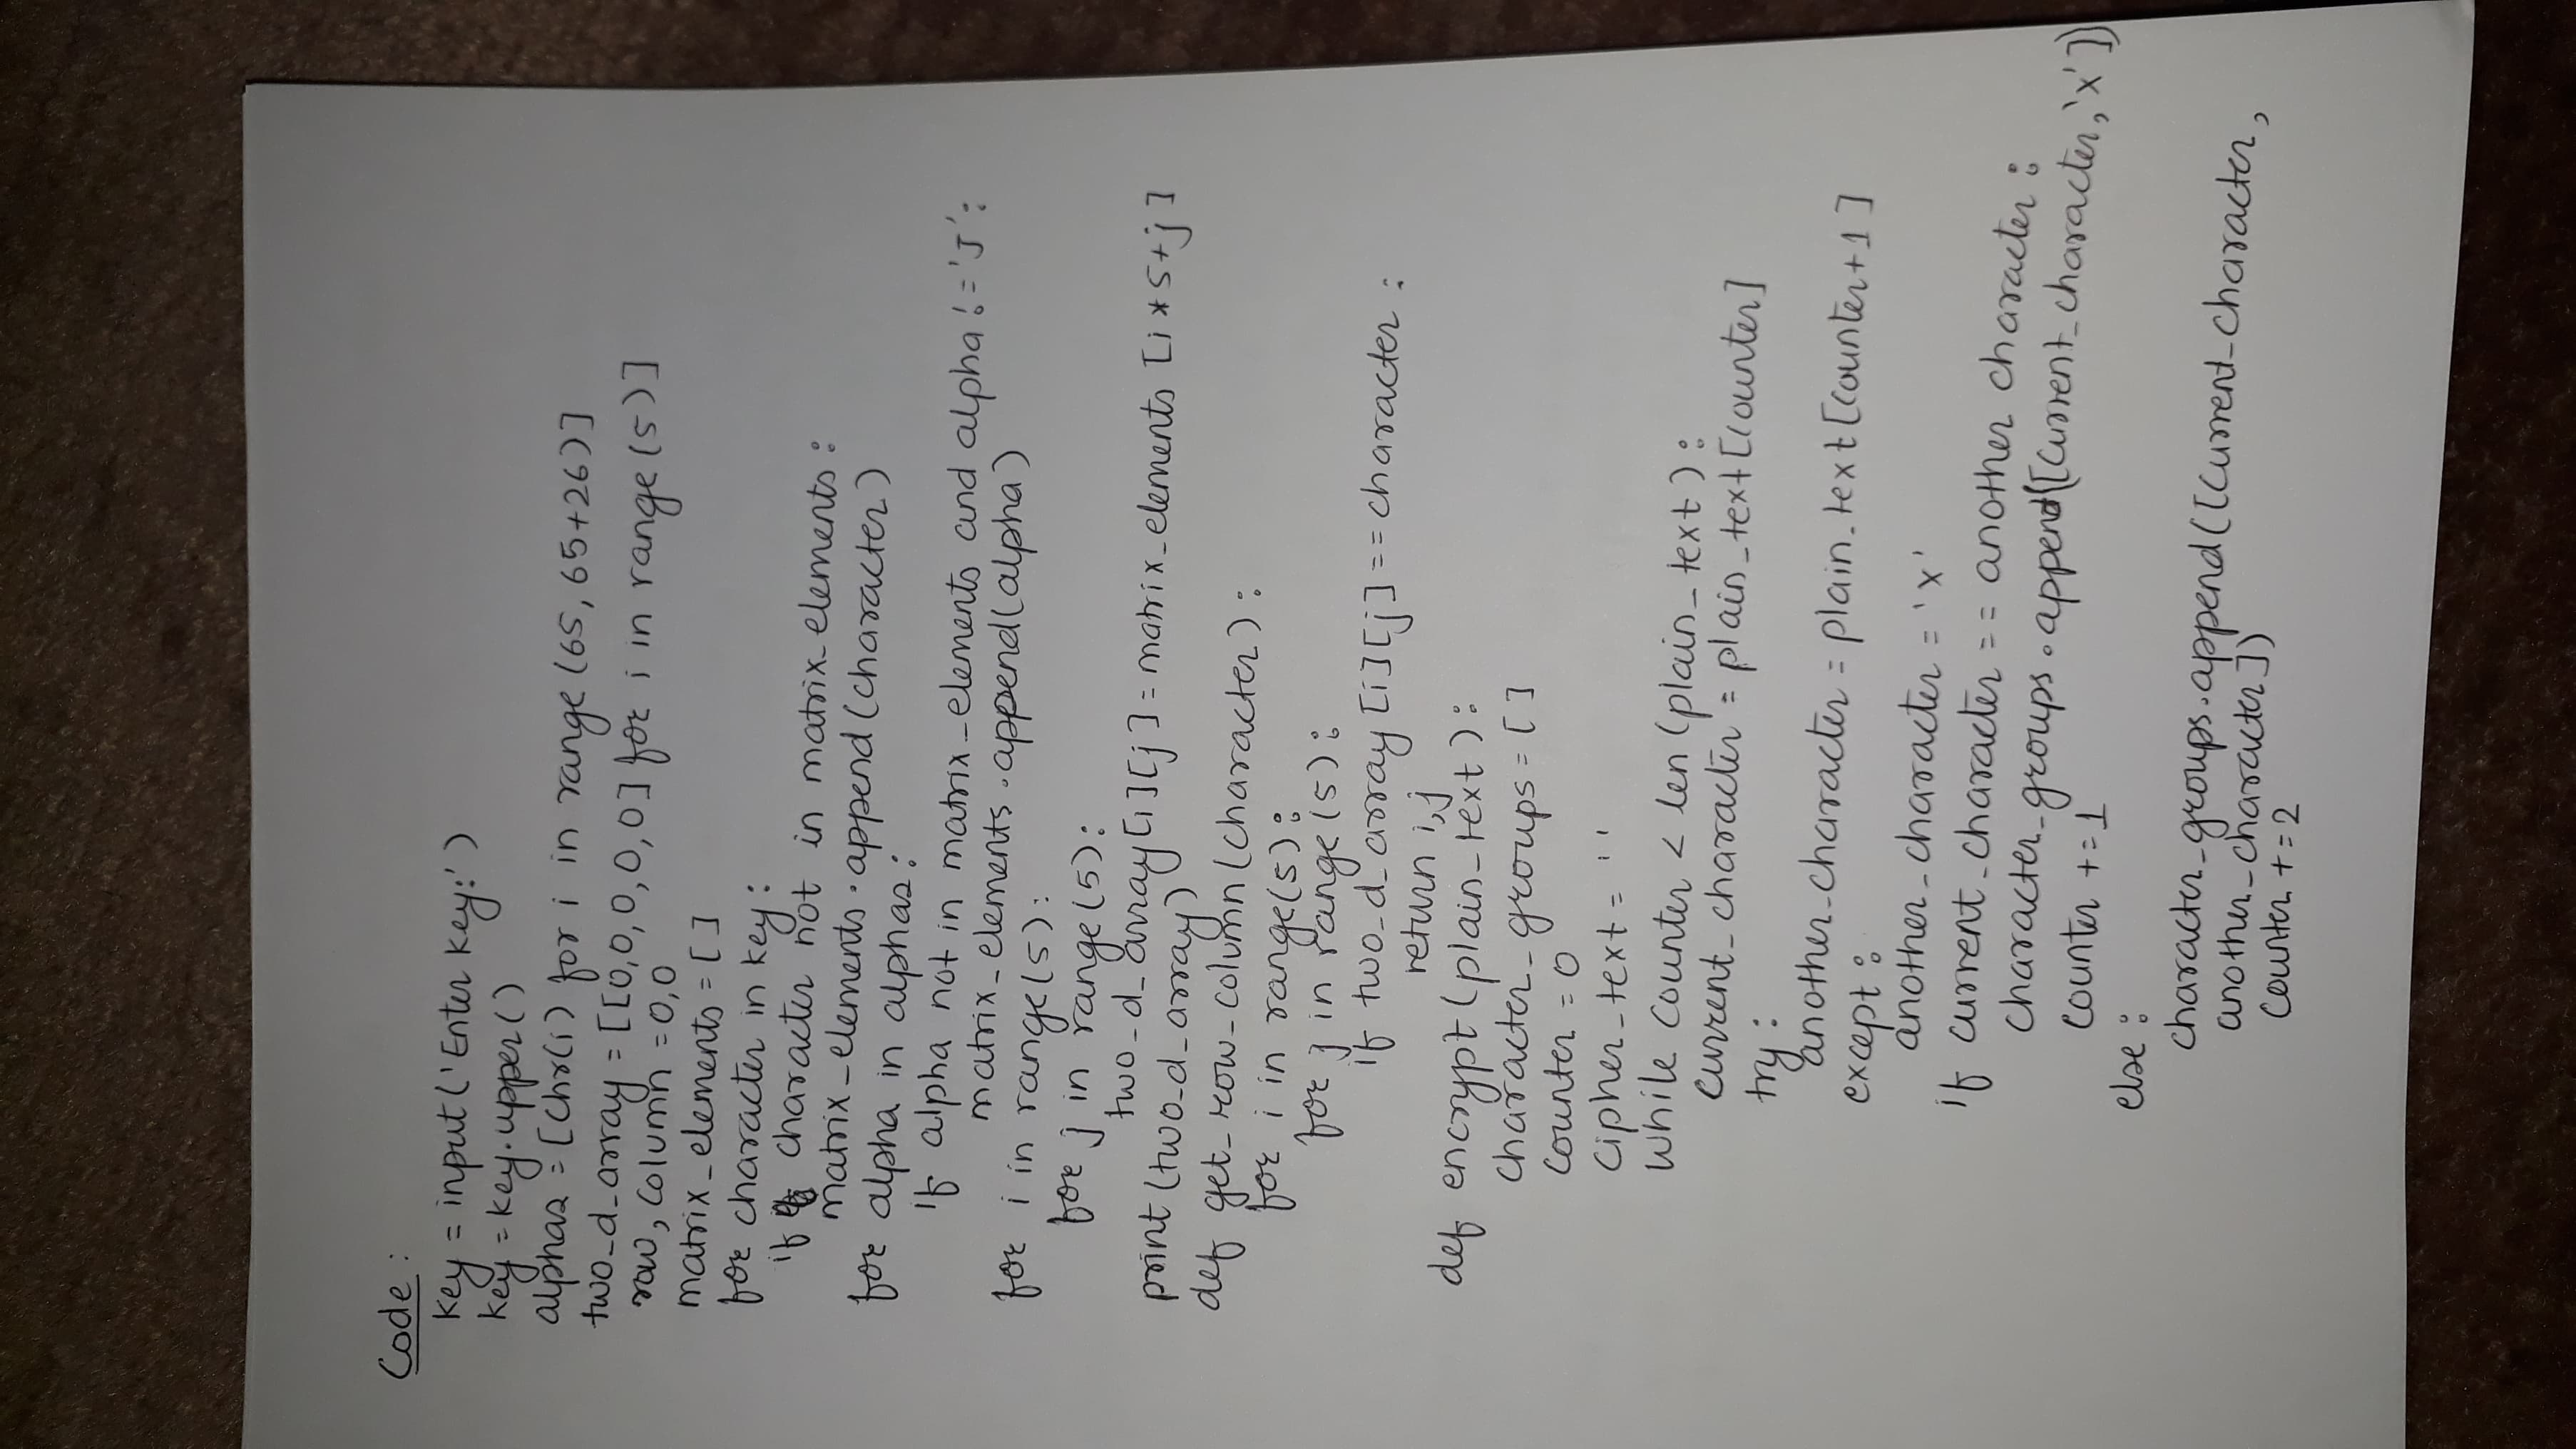 Code :
key = input('Enter key:')
key = key.upper()
alphas = [chr(i) for i in range (65, 65+26)]
two_d_array = [[0,0,0,0,0] for i in range (5)]
row, column = 0,0
matrix_elements = [ ]
for character in key:
if character not in matrix_elements :
matrix_elements.append (character)
for alpha in alphas :
if alpha not in matrix_elements and alpha != 'J' :
matrix_elements.append(alpha)
for i in range(5) :
for j in range (5) :
two_d_array[i][j] = matrix_elements [i*5+j]
print (two_d_array)
def get_row_column (character) :
for i in range(5) :
for j in range (5) :
if two_d_array [i][j] == character :
return i,j
def encrypt (plain_text) :
character_groups = [ ]
counter = 0
cipher_text = ' '
while counter < len (plain_text) :
current_character = plain_text [counter]
try :
another_character = plain_text [counter+1]
except :
another_character = 'x'
if current_character == another character :
character_groups.append([current_character,'x'])
counter += 1
else :
character_groups.append([current_character,
another_character])
counter += 2